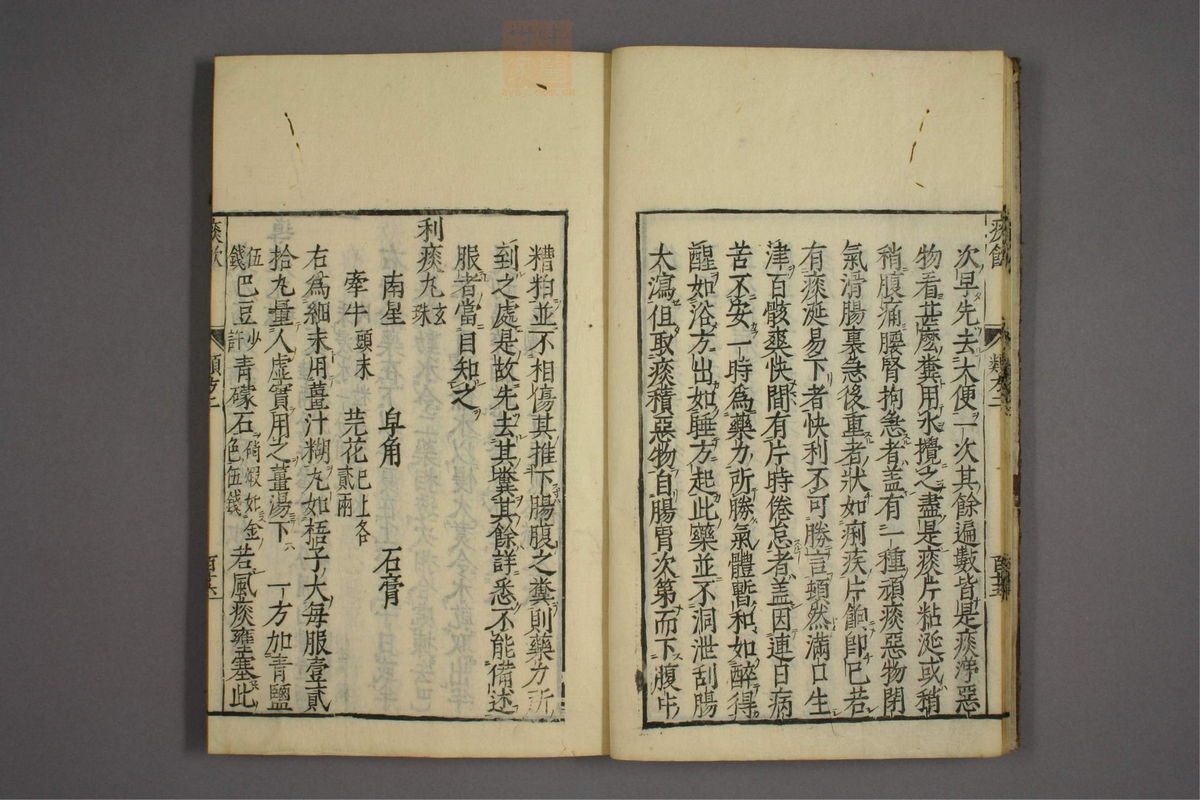 次早先去大便一次其餘遍數皆是痰涕惡
物看甚麽糞用水攪之盡是痰片粘涎或稍
稍腹痛腰腎拘急者盖有一種頑痰惡物閉
氣滑腸裏急後重者狀如痢疾片餉即已若
有痰涎易下者快利不可勝言頓然滿口生
津百骸爽快間有片時倦怠者盖因連日病
苦不安一時為藥力所勝氣體暫和如醉得
醒如浴方出如睡方起此藥並不洞泄刮腸
大瀉但取痰積惡物自腸胃次第而下腹中
糟粕並不相傷其推下腸腹之糞則藥力所
到之處是故先去其糞其餘詳悉不能備述
服者當目知之
利痰丸 玄珠
南星 皁角 石膏
牽牛 頭末 芫花 已上各貳兩
右為細末用薑汁糊丸如梧子大每服壹貳
拾丸量人虛實用之薑湯下 一方加青鹽
伍錢巴豆少許青礞石 如金色伍錢 若風痰壅塞此